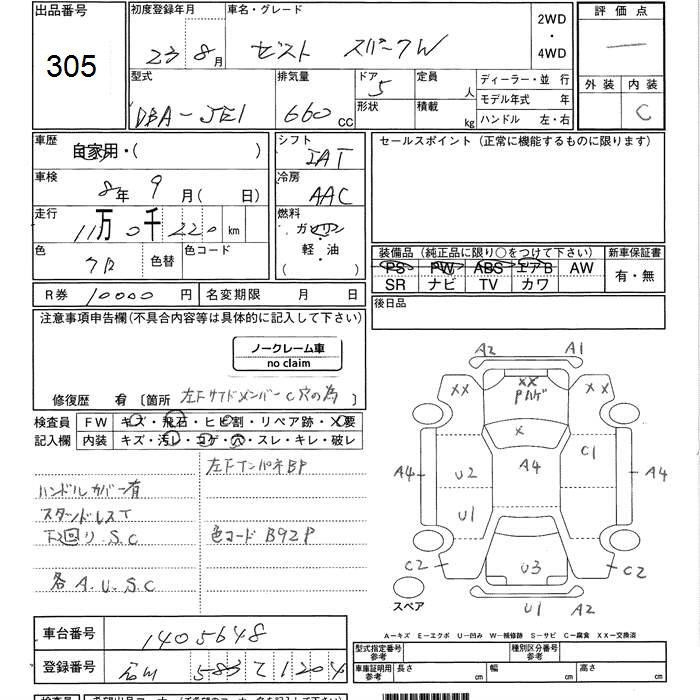 出品番号 初度登録年月 車名・グレード 2WD・4WD 評価点
305 23年8月 ゼスト スパークW
外装 内装 C
型式 排気量 ドア 5 定員 人 ディーラー・並行
DBA-JE1 660cc 形状 積載 kg モデル年式 年
ハンドル 左・右
車歴 自家用・( ) シフト IAT セールスポイント (正常に機能するものに限ります)
車検 8年9月( 日) 冷房 AAC
走行 11万0千220km 燃料 ガソリン・軽・油 ( )
色 クロ 色替 色コード
装備品 (純正品に限り○をつけて下さい) 新車保証書
PS PW ABS エアB AW 有・無
SR ナビ TV カワ
R券 10000円 名変期限 月 日 後日品
注意事項申告欄(不具合内容等は具体的に記入して下さい)
ノークレーム車
no claim
修復歴 有 〔箇所 左Fサイドメンバー C穴の為 〕
検査員記入欄 FW キズ・飛石・ヒビ割・リペア跡・X要
内装 キズ・汚レ・コゲ・穴・スレ・キレ・破レ
左Fインパネ BP
ハンドルカバー有
スタッドレスT
下回り S.C 色コード B92P
各A.U.S.C
A2 A1
XX XX XX
Pハゲ
X
A4 U2 A4 C1 A4
U1
C2 U3 C2
スペア U1 A2
A-キズ E-エクボ U-凹み W-補修跡 S-サビ C-腐食 XX-交換済
車台番号 1405648
登録番号 583 1204
型式指定番号 種別区分番号
車庫証明用 長さ cm 幅 cm 高さ cm